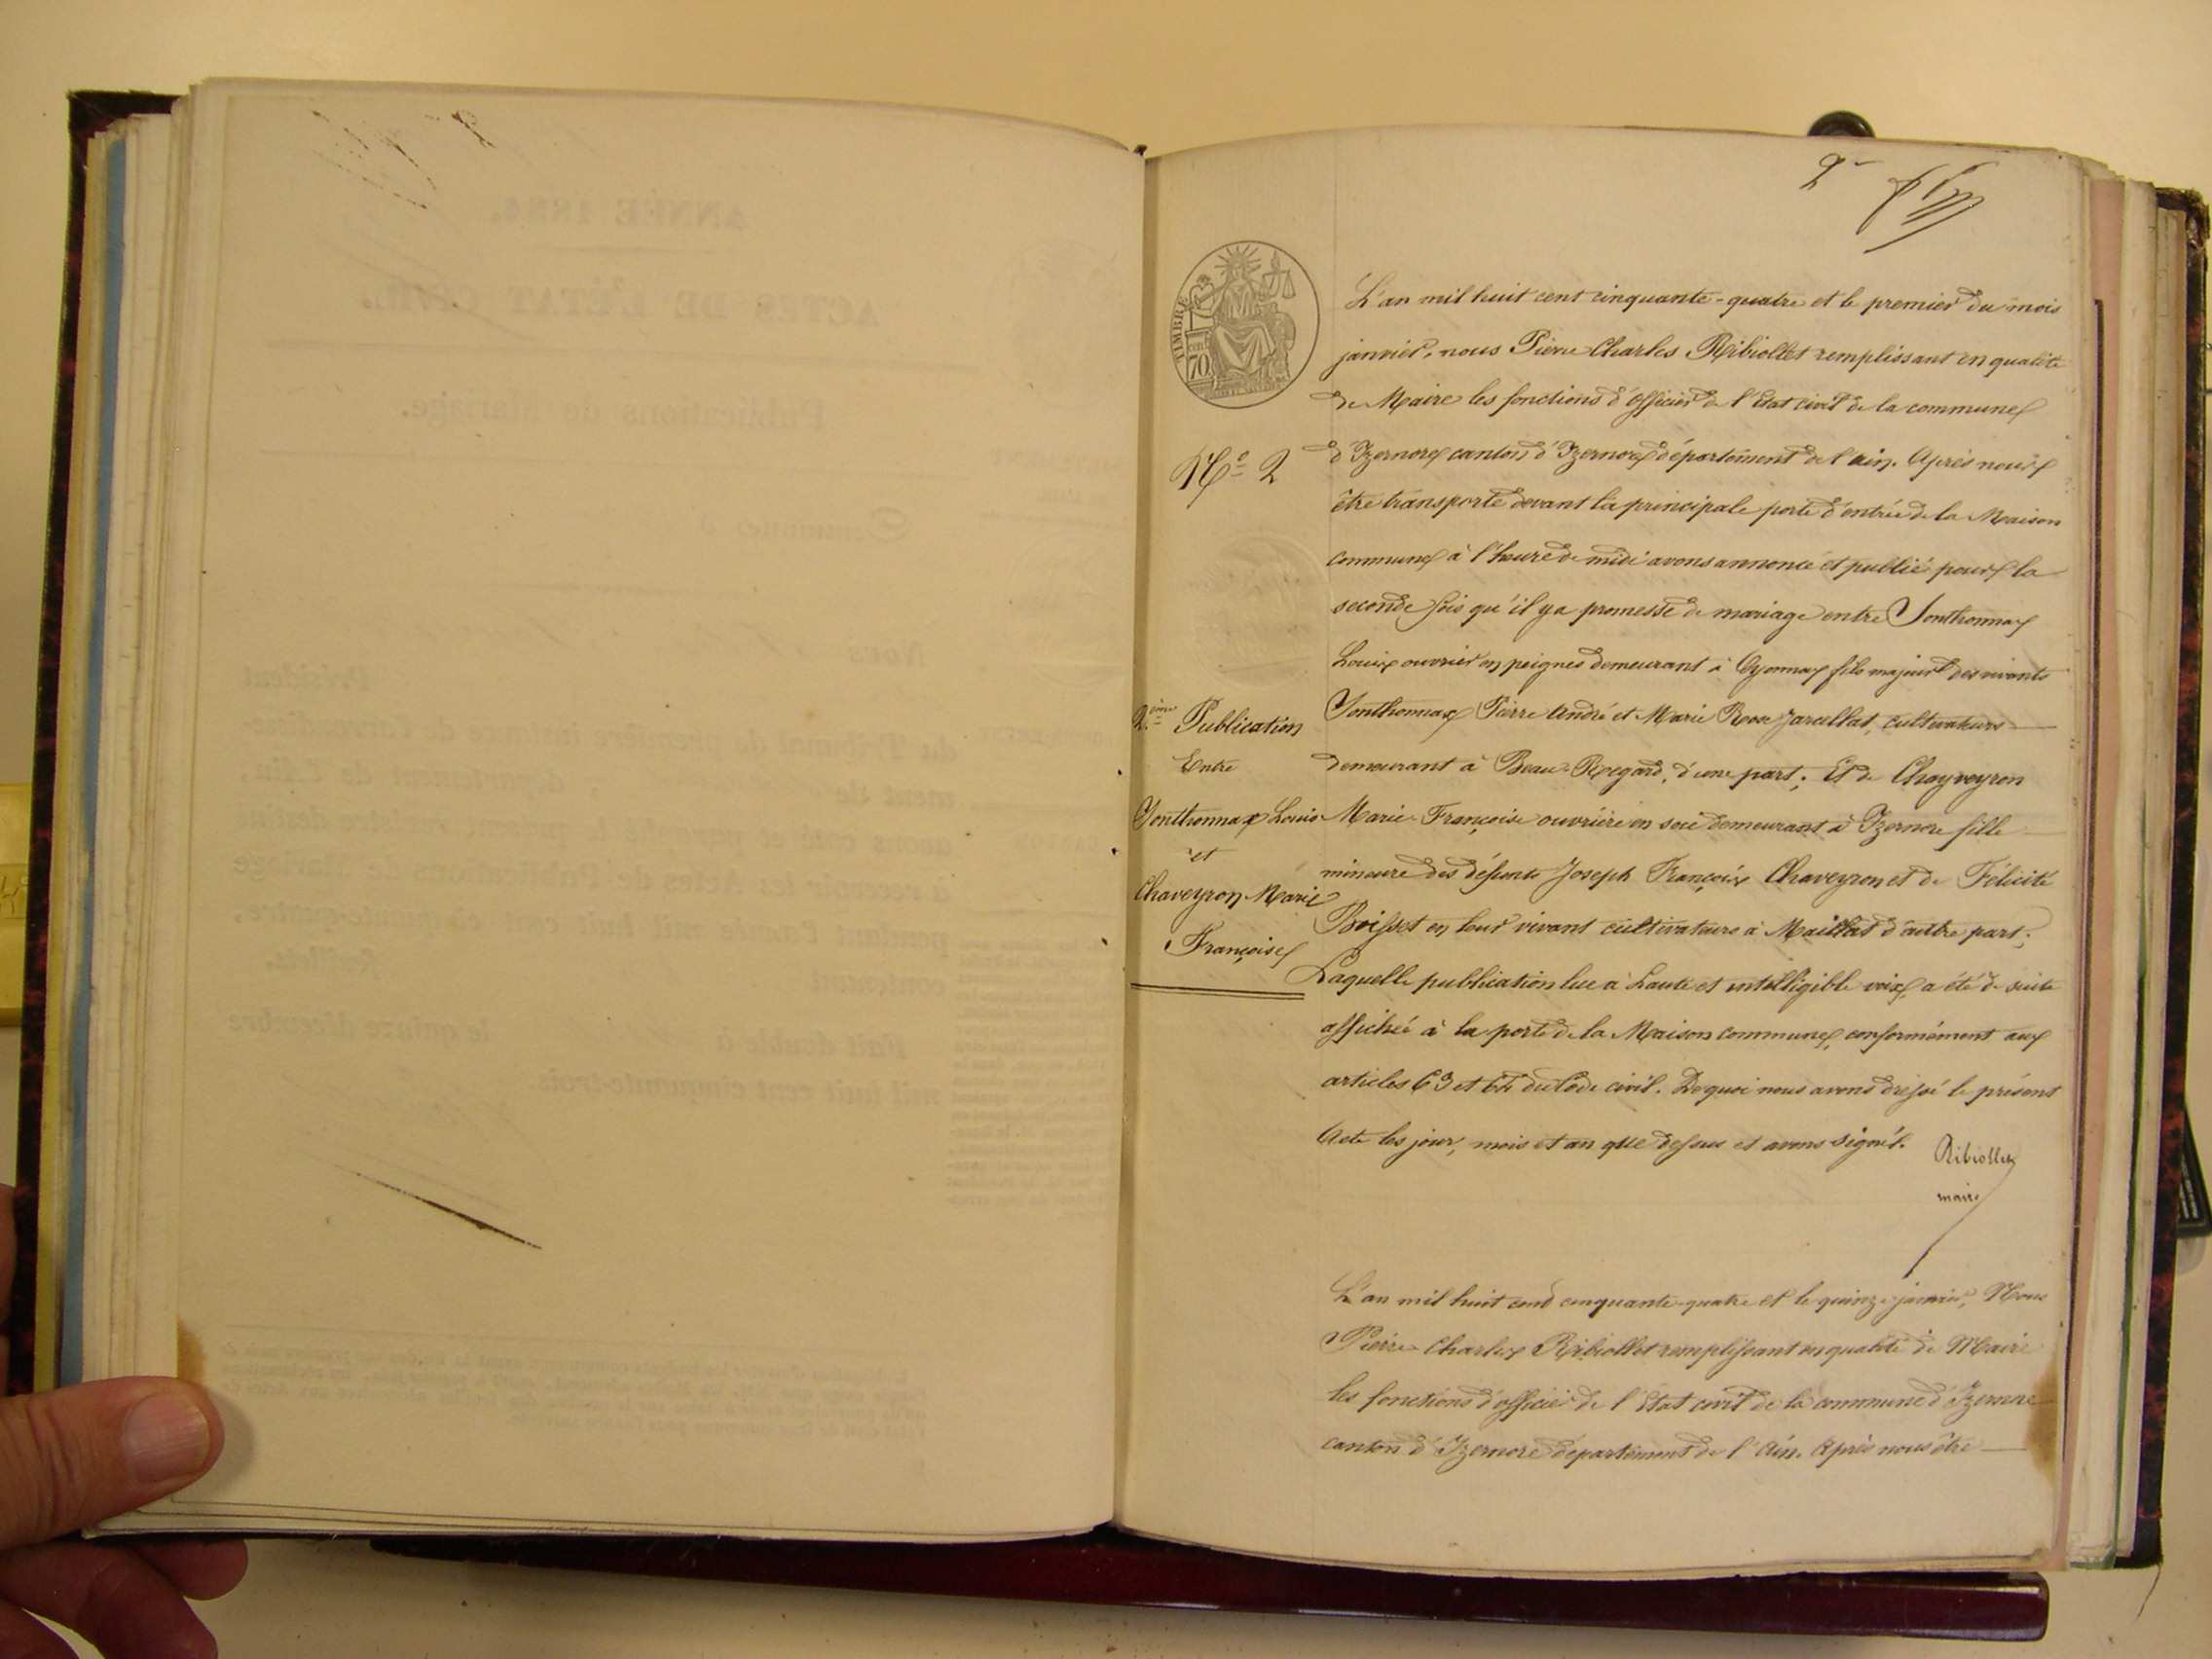 2
TIMBRE
70
L'an mil huit cent cinquante-quatre et le premier du mois
janvier, nous Pierre Charles Ribiollet remplissant en qualité
de Maire les fonctions d'officier de l'Etat civil de la commune
N° 2
d'Izernore canton d'Izernore département de l'ain. Après nous
être transporté devant la principale porte d'entrée de la Maison
commune à l'heure de midi avons annoncé et publié pour la
seconde fois qu'il y a promesse de mariage entre Jonthonnax
Louis ouvrier en peignes demeurant à Oyonnax fils majeur des vivants
Jonthonnax Pierre André et Marie Rose Jarcellat, cultivateurs
demeurant à Beau-Regard, d'une part; Et de Chayveyron
Marie Françoise ouvrière en soie demeurant à Izernore fille
mineure des défunts Joseph François Chaveyron et de Félicité
Boisset en leur vivant cultivateurs à Maillat d'autre part;
Laquelle publication lue à haute et intelligible voix, a été de suite
affichée à la porte de la Maison commune, conformément aux
articles 63 et 64 du Code civil. De quoi nous avons dressé le présent
Acte les jour, mois et an que dessus et avons signé.
Ribiollet
maire
2.ème Publication
Entre
Jonthonnax Louis
et
Chaveyron Marie
Françoise
L'an mil huit cent cinquante-quatre et le quinze janvier, Nous
Pierre Charles Ribiollet remplissant en qualité de Maire
les fonctions d'officier de l'Etat civil de la commune d'Izernore
canton d'Izernore département de l'Ain. Après nous être